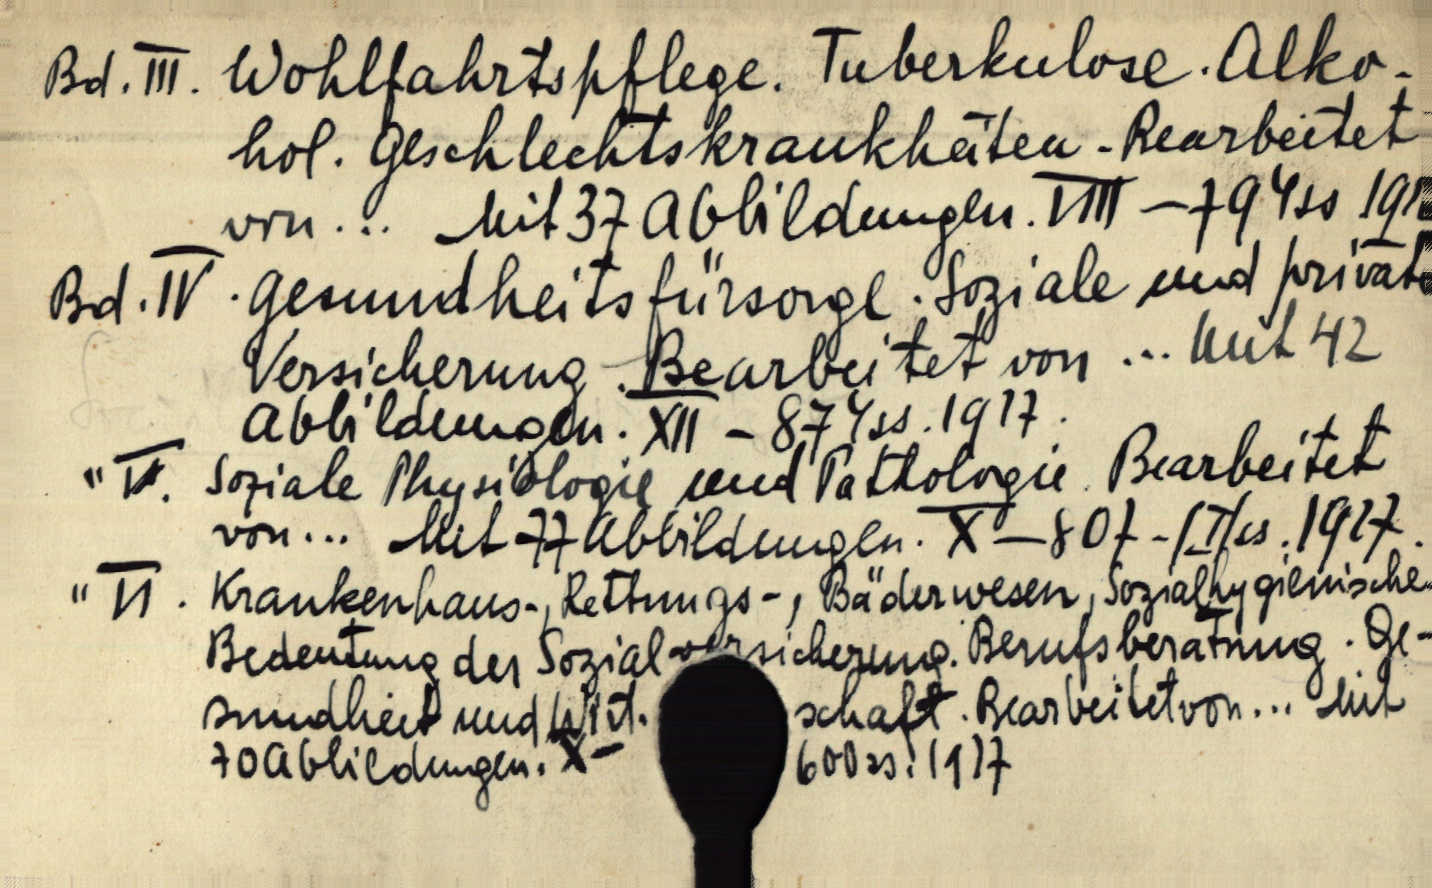 Bd. III. Wohlfahrtspflege. Tuberkulose. Alko-
hol. Geschlechtskrankheiten - Bearbeitet
von... Mit 37 Abbildungen. VIII - 794 ss
Bd. IV. Gesundheitsfürsorge. Soziale und private
Versicherung. Bearbeitet von ... Mit 42
Abbildungen. XII - 874 ss. 1927.
" V. Soziale Physiologie und Pathologie. Bearbeitet
von... Mit 77 Abbildungen. X - 807 - [I] ss. 1927.
" VI. Krankenhaus-, Rettungs-, Bäderwesen, Sozialhygienische
Bedeutung der Sozialversicherung. Berufsberatung. Ge-
sundheit und Wirt. schaft. Bearbeitet von... Mit
70 Abbildungen. X - 600 ss. 1927